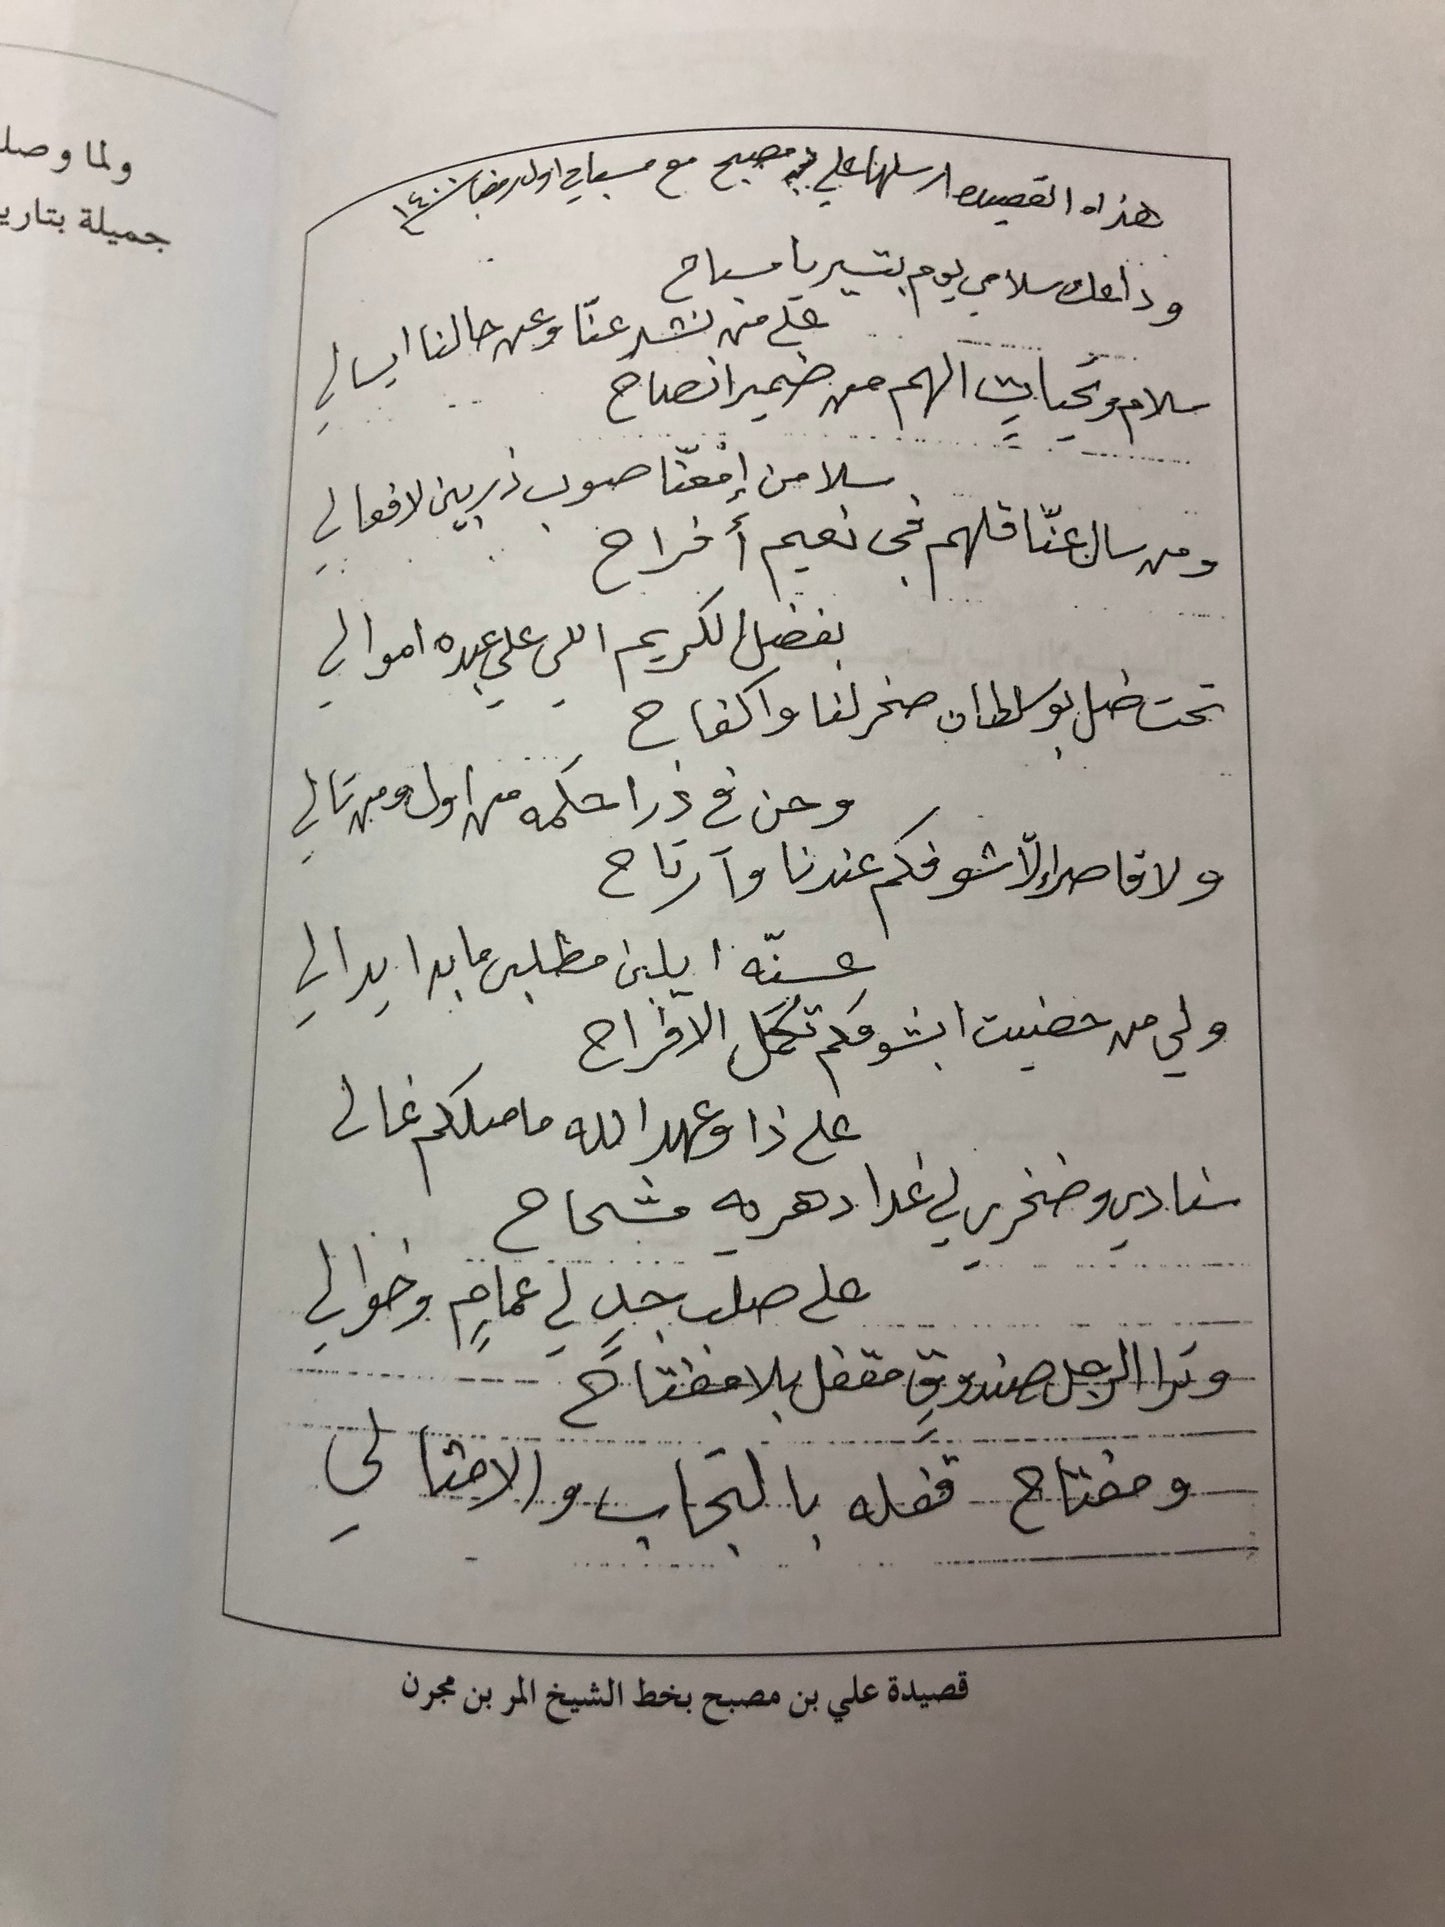 ولما وصلـ
جميلة بتاريـ
هذه القصيده ارسلها علي بن مصبح مع مسباح اول رمضان ١٤٠٠
وداعك سلامي يوم بتسير يا مسباح
على من نشد عنّا وعن حالنا ايسالي
سلام وتحياتٍ الهم من ضمير انصاح
سلا من إمْعنّا صوب ذربين لافعالي
ومن سال عنّا قلهم في نعيم أفراح
بفضل الكريم اللي علي عبده اموالي
تحت ضل بوسلطان صخر لفا واكفاح
وحن في ذرا حكمه من اول ومن تالي
ولا قاصر إلّا شوفكم عندنا وآرتاح
عسنّه ايلبي مطلبي ما بدا يدالي
ولي من حضيت ابشوفكم تكمل الافراح
على ذا وعهد الله ما صلكم غالي
سنادي وضخري لي غدا دهريه مشحاح
على صلب جدٍ لي عمامٍ وخوالي
وترا الرجل صندوقٍ مقفل بلا مفتاح
ومفتاح قفله بالتجاب والامثالي
قصيدة علي بن مصبح بخط الشيخ المر بن مجرن